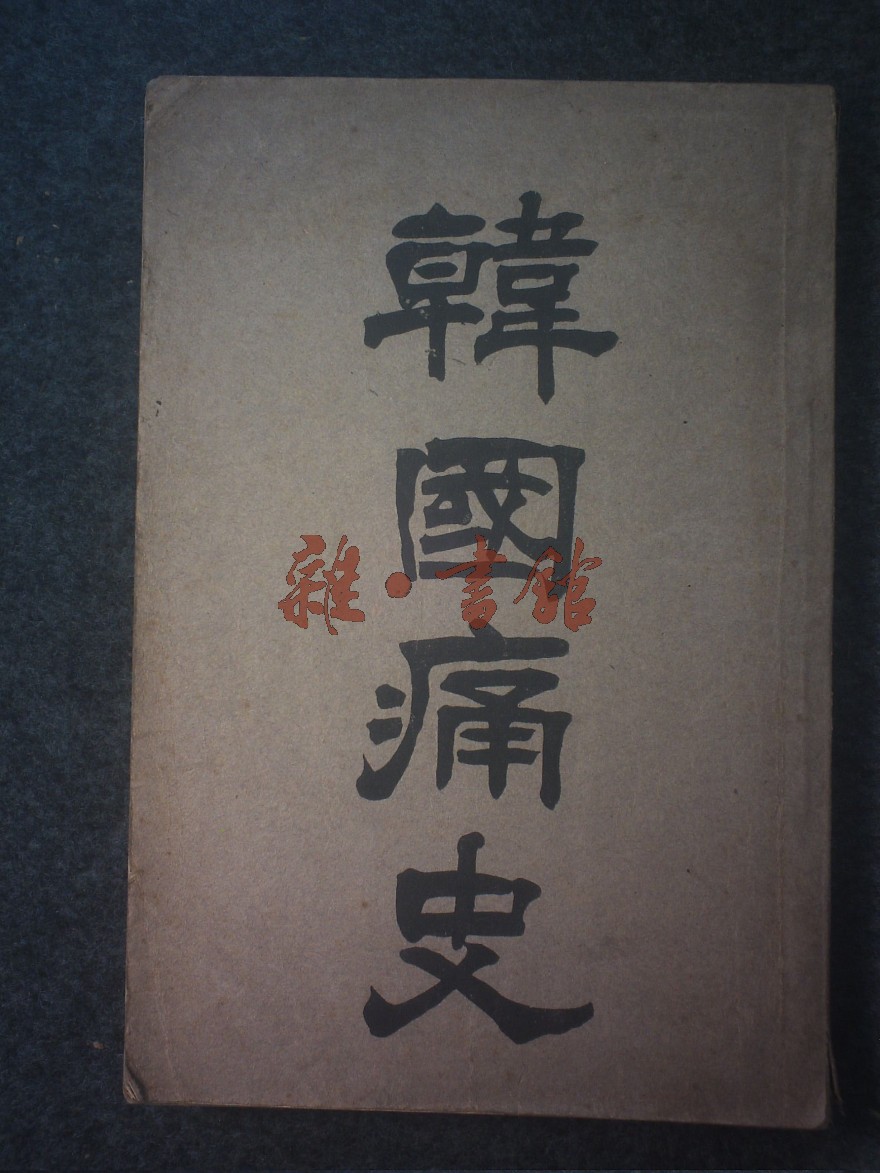 韓國痛史
雜·書館